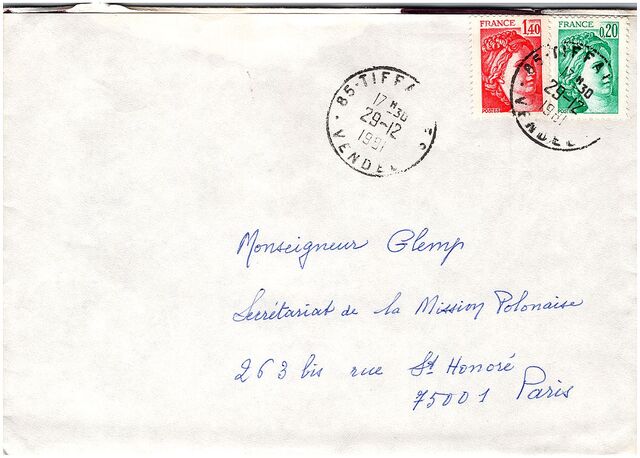 FRANCE 1,40
POSTES
FRANCE 0,20
85-TIFFA
17 H30
29-12
1981
VENDEE
85-TIFFA
17 H30
29-12
1981
VENDEE
Monseigneur Glemp
Secrétariat de la Mission Polonaise
263 bis rue St Honoré
75001 Paris